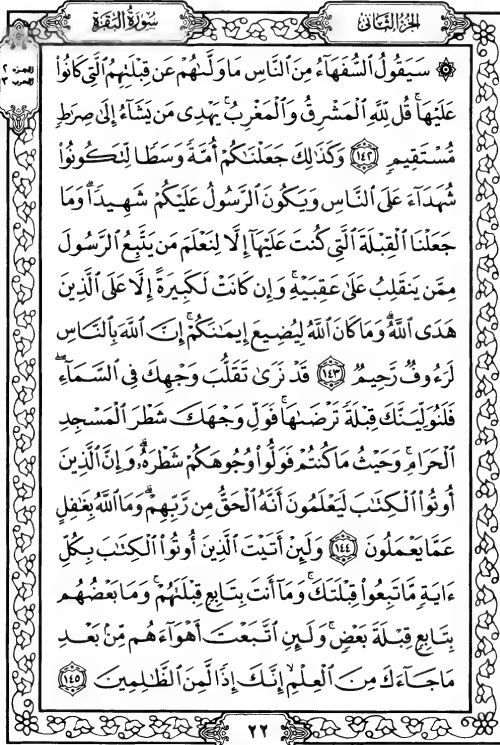 سُورَةُ البَقَرَةِ الجُزءُ الثَّانِي
الجزء ٢
الحزب ٣
۞ سَيَقُولُ ٱلسُّفَهَآءُ مِنَ ٱلنَّاسِ مَا وَلَّىٰهُمْ عَن قِبْلَتِهِمُ ٱلَّتِى كَانُوا۟
عَلَيْهَا ۚ قُل لِّلَّهِ ٱلْمَشْرِقُ وَٱلْمَغْرِبُ ۚ يَهْدِى مَن يَشَآءُ إِلَىٰ صِرَٰطٍ
مُّسْتَقِيمٍ ﴿١٤٢﴾ وَكَذَٰلِكَ جَعَلْنَـٰكُمْ أُمَّةً وَسَطًا لِّتَكُونُوا۟
شُهَدَآءَ عَلَى ٱلنَّاسِ وَيَكُونَ ٱلرَّسُولُ عَلَيْكُمْ شَهِيدًا ۗ وَمَا
جَعَلْنَا ٱلْقِبْلَةَ ٱلَّتِى كُنتَ عَلَيْهَآ إِلَّا لِنَعْلَمَ مَن يَتَّبِعُ ٱلرَّسُولَ
مِمَّن يَنقَلِبُ عَلَىٰ عَقِبَيْهِ ۚ وَإِن كَانَتْ لَكَبِيرَةً إِلَّا عَلَى ٱلَّذِينَ
هَدَى ٱللَّهُ ۗ وَمَا كَانَ ٱللَّهُ لِيُضِيعَ إِيمَـٰنَكُمْ ۚ إِنَّ ٱللَّهَ بِٱلنَّاسِ
لَرَءُوفٌ رَّحِيمٌ ﴿١٤٣﴾ قَدْ نَرَىٰ تَقَلُّبَ وَجْهِكَ فِى ٱلسَّمَآءِ ۖ
فَلَنُوَلِّيَنَّكَ قِبْلَةً تَرْضَىٰهَا ۚ فَوَلِّ وَجْهَكَ شَطْرَ ٱلْمَسْجِدِ
ٱلْحَرَامِ ۚ وَحَيْثُ مَا كُنتُمْ فَوَلُّوا۟ وُجُوهَكُمْ شَطْرَهُۥ ۗ وَإِنَّ ٱلَّذِينَ
أُوتُوا۟ ٱلْكِتَـٰبَ لَيَعْلَمُونَ أَنَّهُ ٱلْحَقُّ مِن رَّبِّهِمْ ۗ وَمَا ٱللَّهُ بِغَـٰفِلٍ
عَمَّا يَعْمَلُونَ ﴿١٤٤﴾ وَلَئِنْ أَتَيْتَ ٱلَّذِينَ أُوتُوا۟ ٱلْكِتَـٰبَ بِكُلِّ
ءَايَةٍ مَّا تَبِعُوا۟ قِبْلَتَكَ ۚ وَمَآ أَنتَ بِتَابِعٍ قِبْلَتَهُمْ ۚ وَمَا بَعْضُهُم
بِتَابِعٍ قِبْلَةَ بَعْضٍ ۚ وَلَئِنِ ٱتَّبَعْتَ أَهْوَآءَهُم مِّنۢ بَعْدِ
مَا جَآءَكَ مِنَ ٱلْعِلْمِ ۙ إِنَّكَ إِذًا لَّمِنَ ٱلظَّـٰلِمِينَ ﴿١٤٥﴾
٢٢